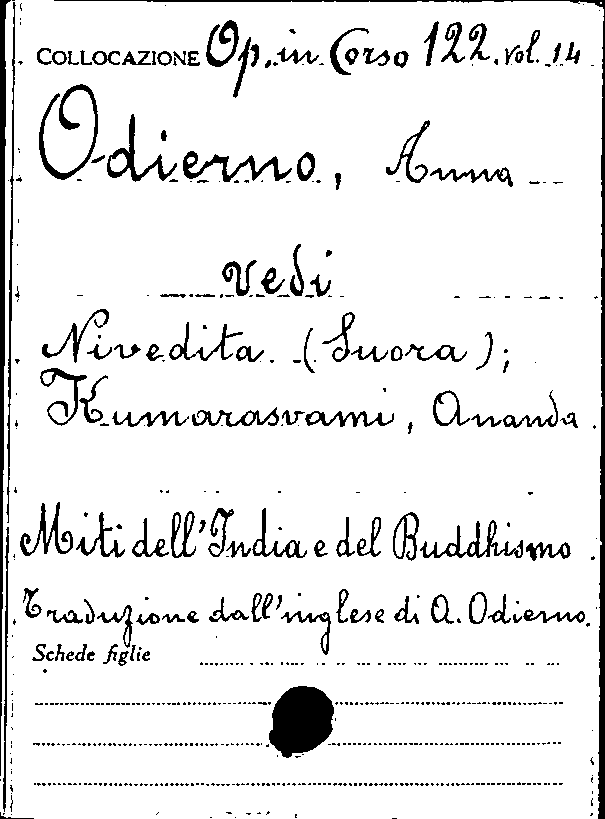 COLLOCAZIONE Op. in Corso 122. vol. 14
Odierno, Anna
vedi
Nivedita. (Suora);
Kumarasvami, Ananda.
Miti dell'India e del Buddhismo.
Traduzione dall'inglese di A. Odierno.
Schede figlie